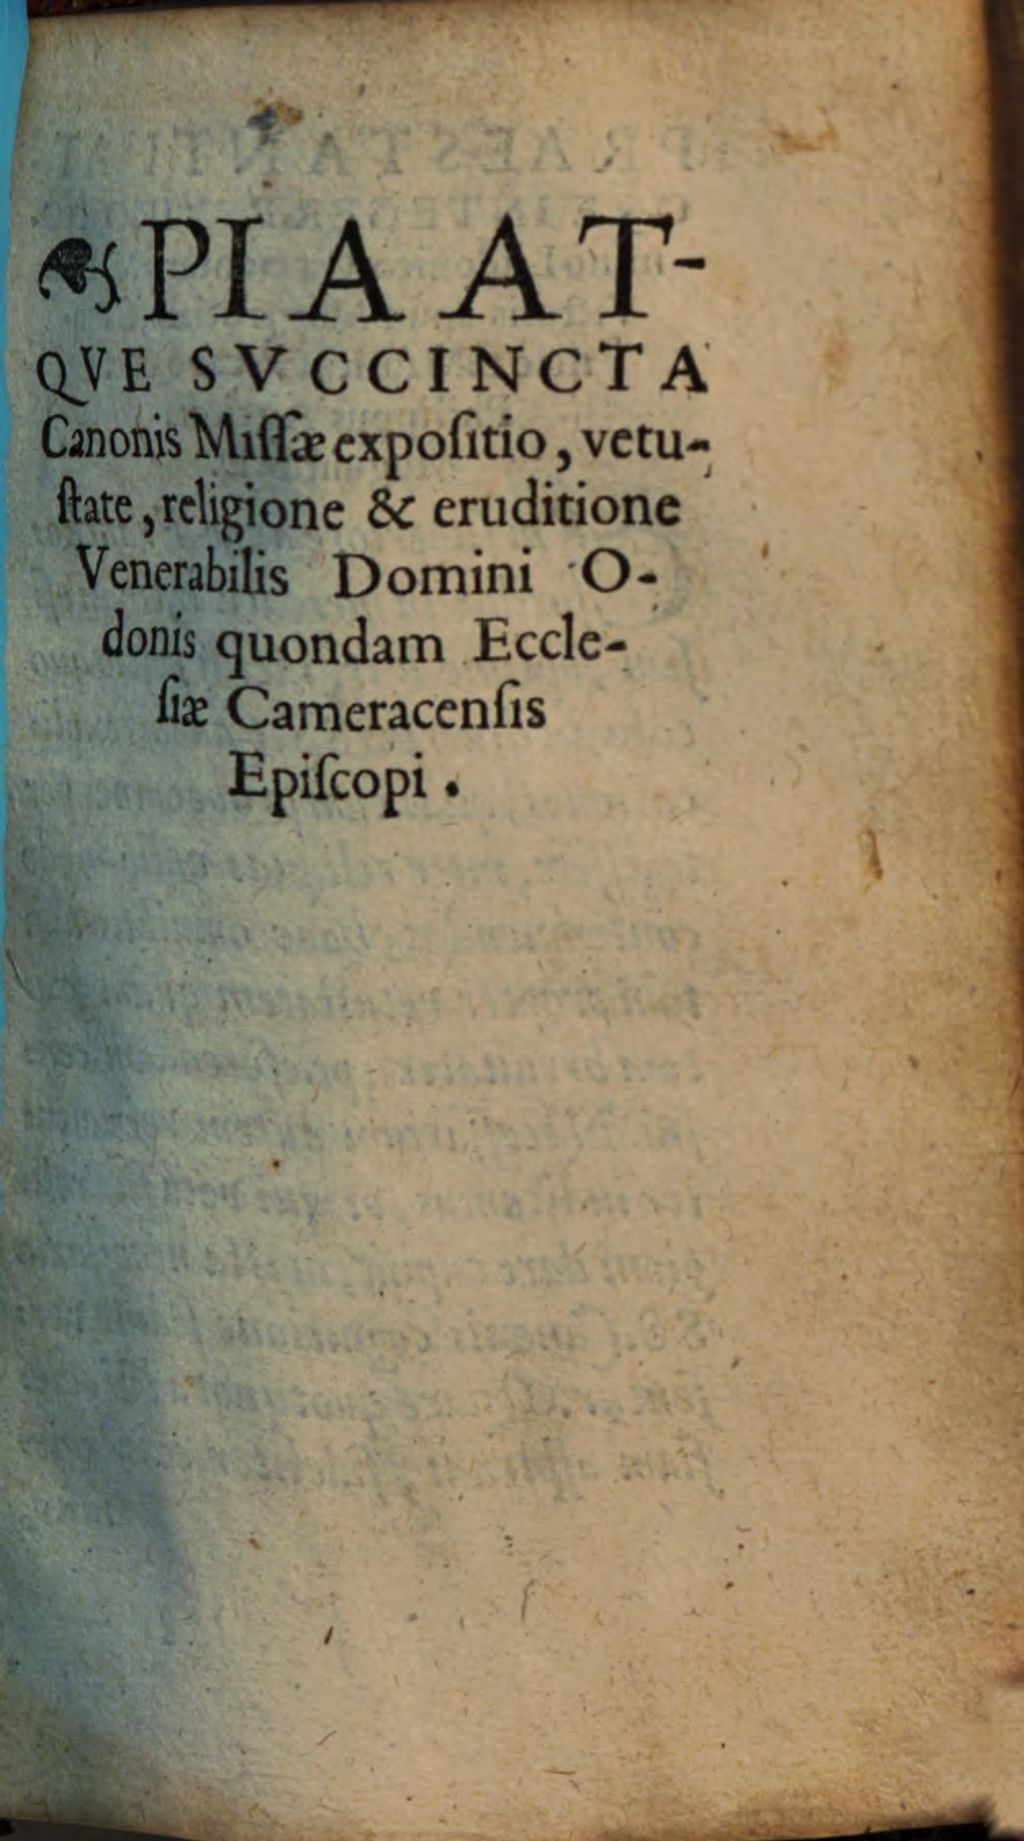 ❧ PIA AT-
QVE SVCCINCTA
Canonis Miſſæ expoſitio, vetu-
ſtate, religione & eruditione
Venerabilis Domini O-
donis quondam Eccle-
ſiæ Cameracenſis
Epiſcopi.